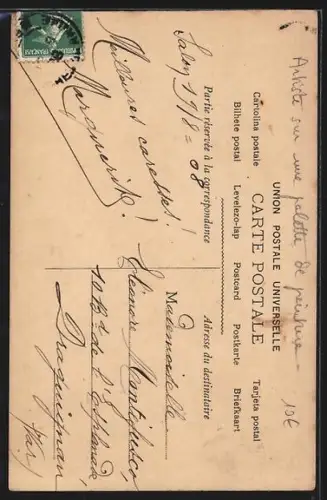 Artiste sur une palette de peinture - 10€
UNION POSTALE UNIVERSELLE
CARTE POSTALE
Cartolina postale
Tarjeta postal
Bilhete postal Levelezo-lap Postcard Postkarte Briefkaart
Partie réservée à la correspondance
Adresse du destinataire
19/8-08
Meilleures caresses!
Marguerite!
Mademoiselle
Eléonore
10 Bd de l'Esplanade,
Draguignan
(Var)